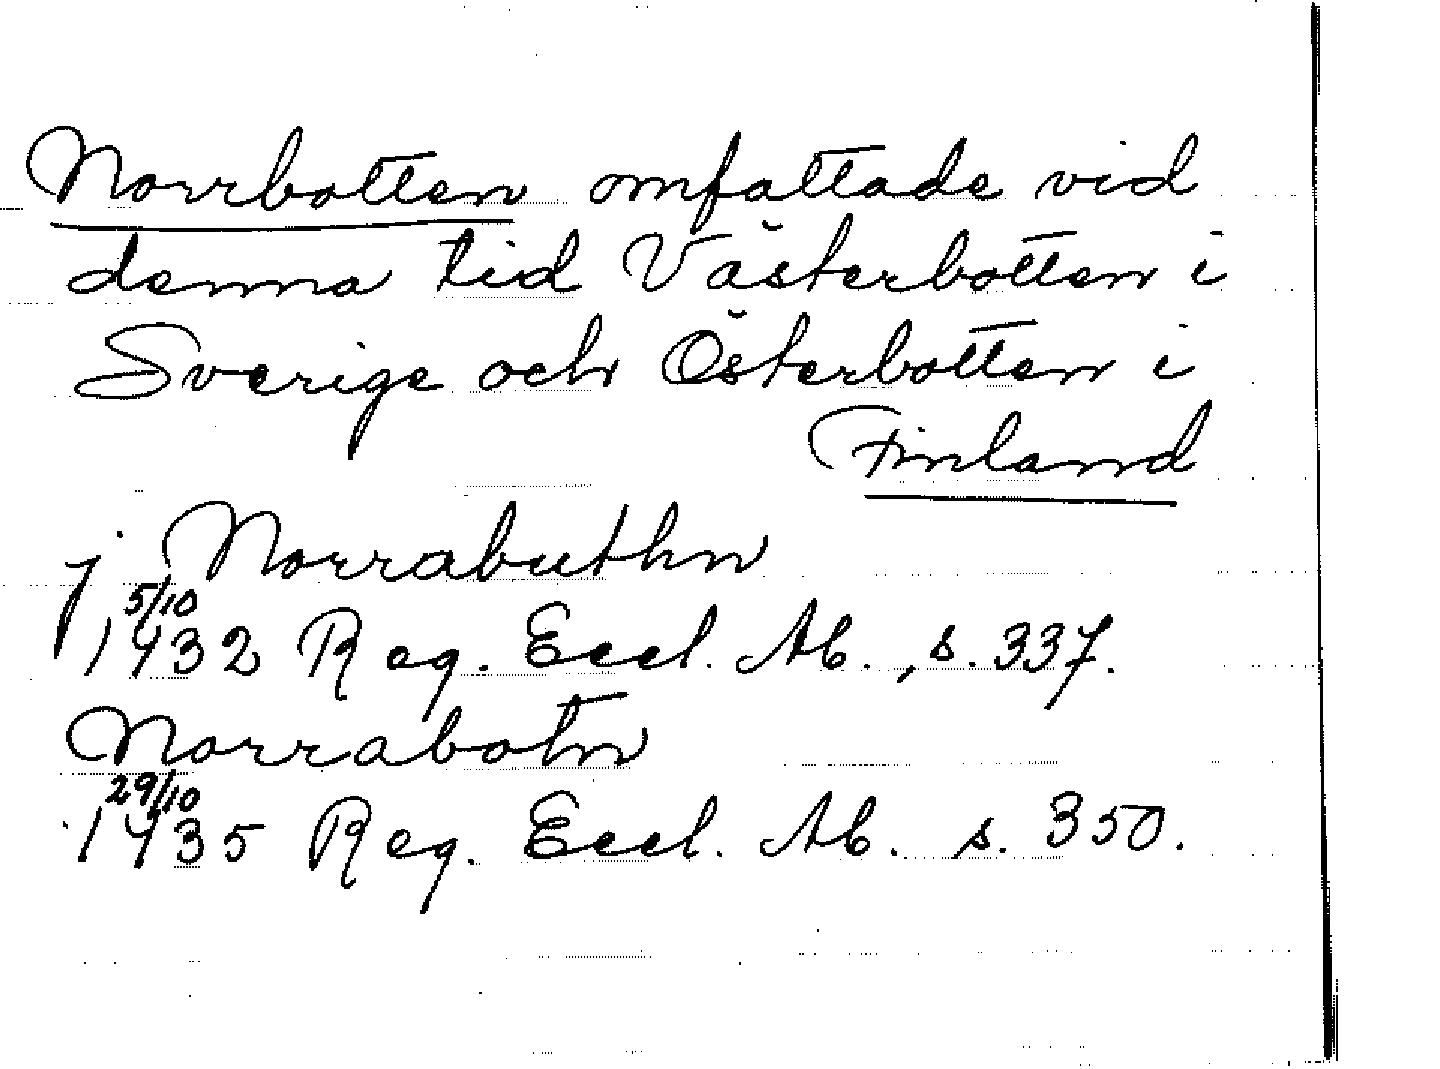 Norrbotten omfattade vid
denna tid Västerbotten i
Sverige och Österbotten i
Finland
j Norrabuthn
5/10
1432 Reg. Eccl. Ab., s. 337.
Norrabotn
29/10
1435 Reg. Eccl. Ab. s. 350.